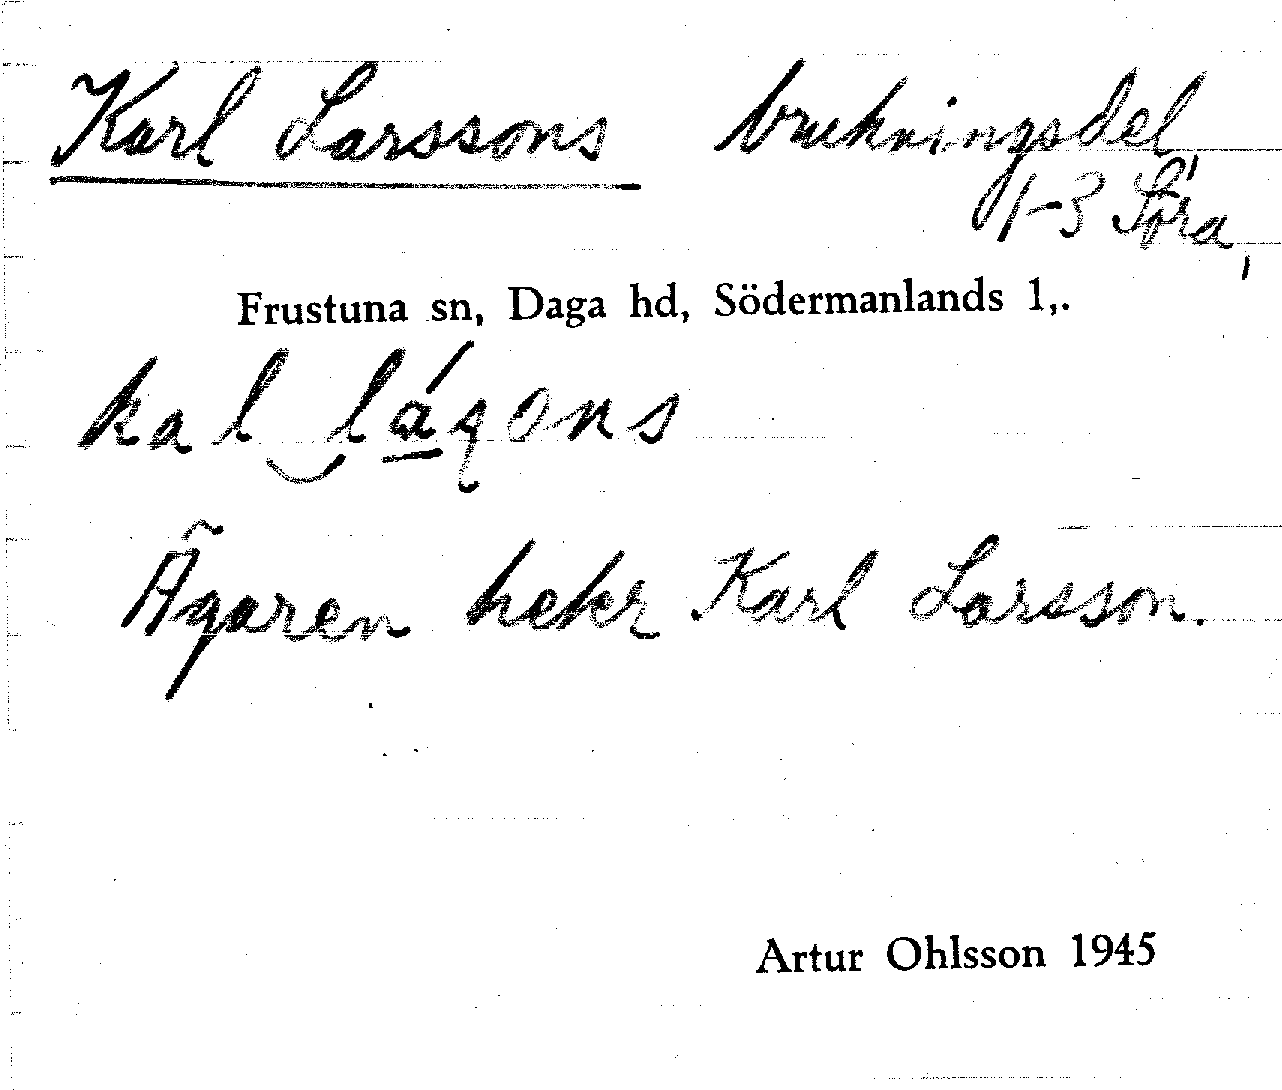 Karl Larssons brukningsdel,
1-3 Söra,
Frustuna sn, Daga hd, Södermanlands l,.
kal láqons
Ägaren heter Karl Larsson.
Artur Ohlsson 1945